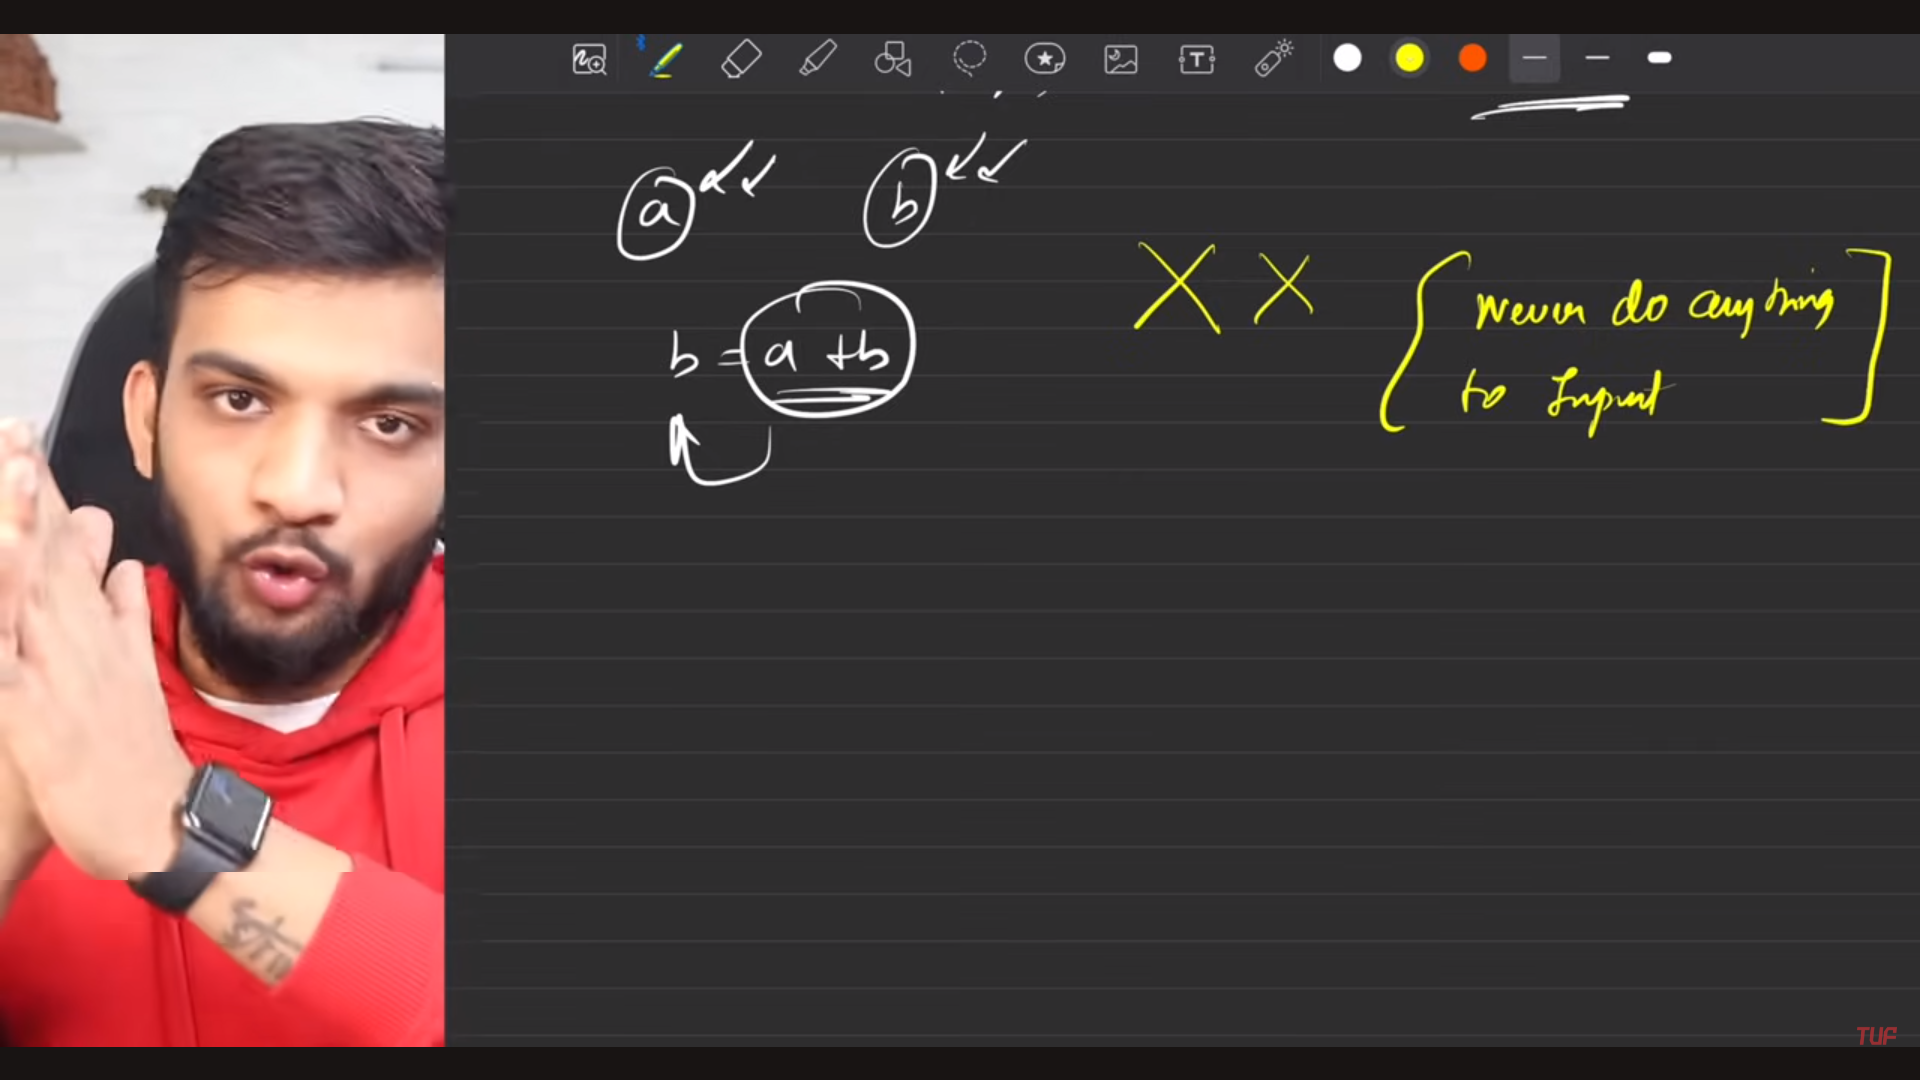 a b
b = a + b
X X
Never do anything
to Input
TUF